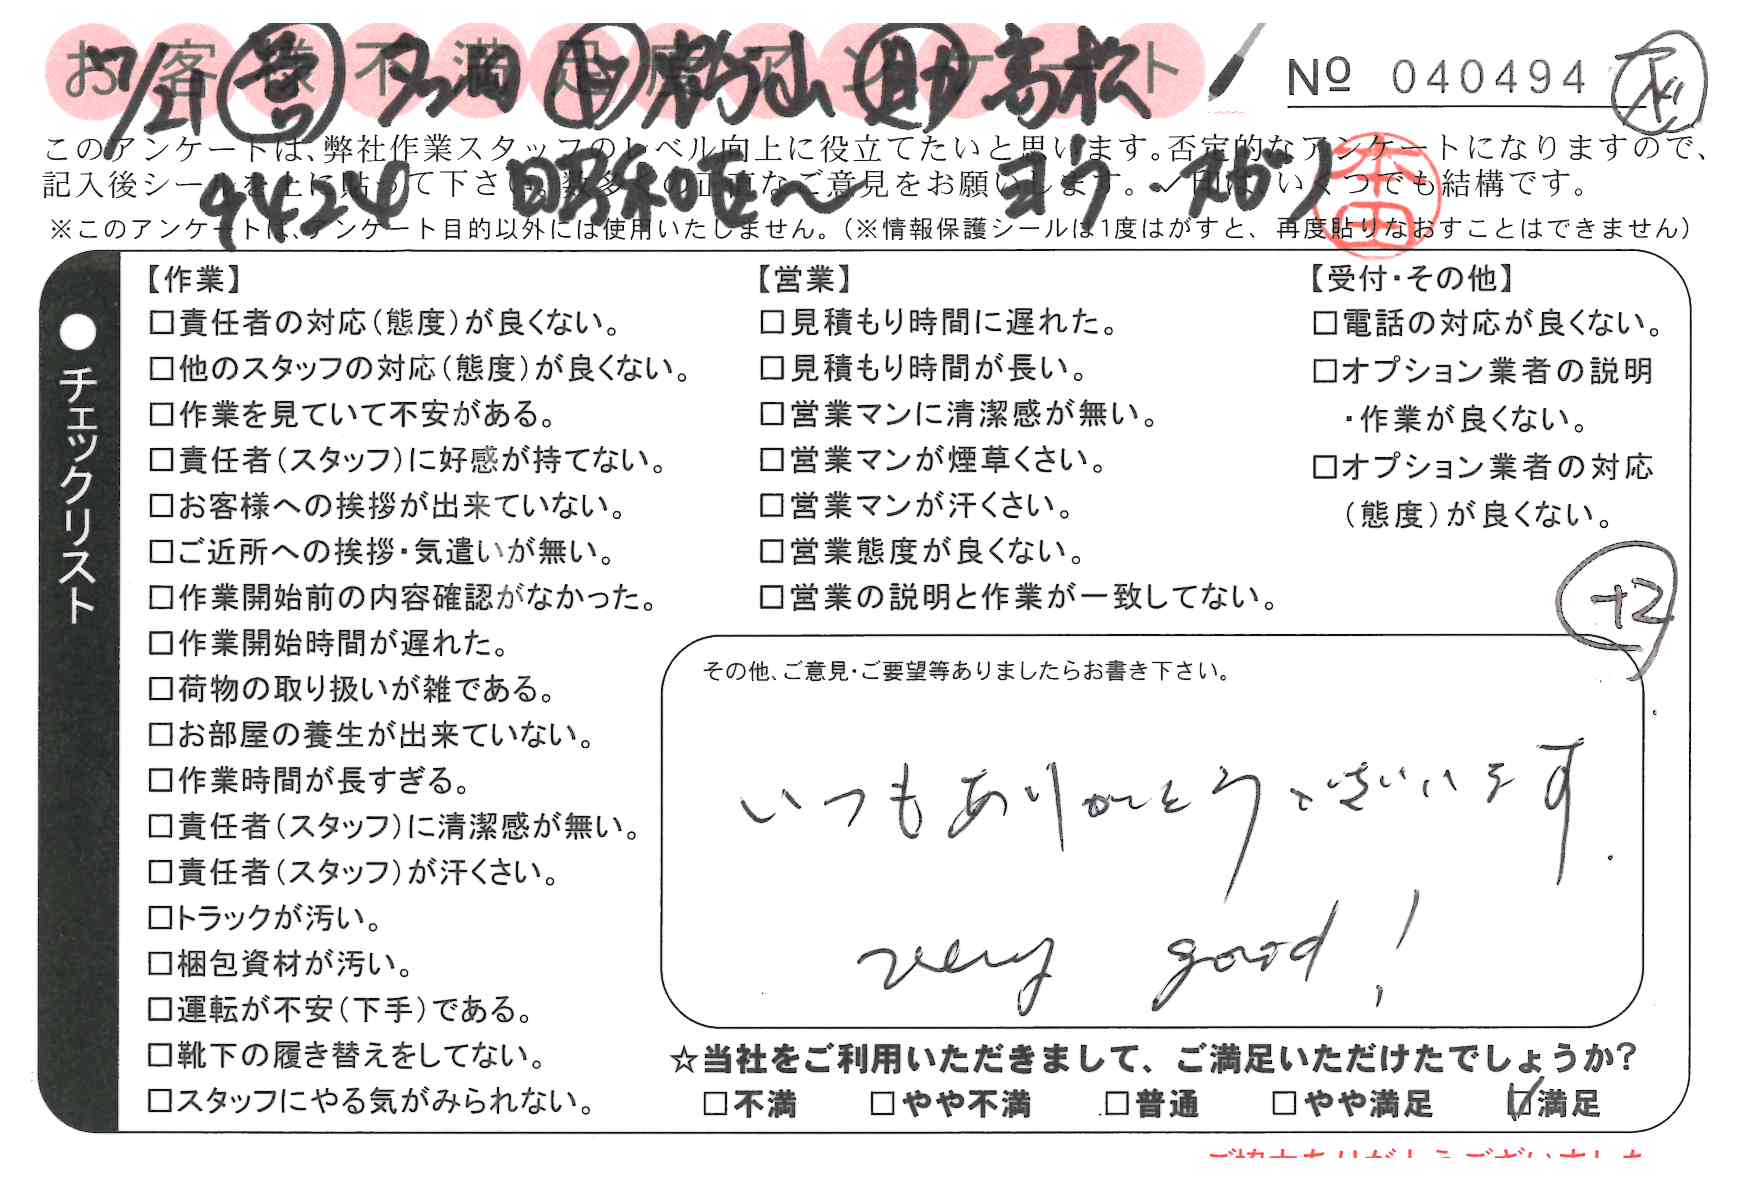 お客様不満足度アンケート
№ 040494
7/21 営 多田 ド 影山 助 高松
このアンケートは、弊社作業スタッフのレベル向上に役立てたいと思います。否定的なアンケートになりますので、
記入後シールを上に貼って下さい。数多くの正直なご意見をお願いします。✓印は、いくつでも結構です。
9424
本田
※このアンケートは、アンケート目的以外には使用いたしません。(※情報保護シールは1度はがすと、再度貼りなおすことはできません)
●チェックリスト
【作業】
□責任者の対応(態度)が良くない。
□他のスタッフの対応(態度)が良くない。
□作業を見ていて不安がある。
□責任者(スタッフ)に好感が持てない。
□お客様への挨拶が出来ていない。
□ご近所への挨拶・気遣いが無い。
□作業開始前の内容確認がなかった。
□作業開始時間が遅れた。
□荷物の取り扱いが雑である。
□お部屋の養生が出来ていない。
□作業時間が長すぎる。
□責任者(スタッフ)に清潔感が無い。
□責任者(スタッフ)が汗くさい。
□トラックが汚い。
□梱包資材が汚い。
□運転が不安(下手)である。
□靴下の履き替えをしてない。
□スタッフにやる気がみられない。
【営業】
□見積もり時間に遅れた。
□見積もり時間が長い。
□営業マンに清潔感が無い。
□営業マンが煙草くさい。
□営業マンが汗くさい。
□営業態度が良くない。
□営業の説明と作業が一致してない。
【受付・その他】
□電話の対応が良くない。
□オプション業者の説明
・作業が良くない。
□オプション業者の対応
(態度)が良くない。
+2
その他、ご意見・ご要望等ありましたらお書き下さい。
いつもありがとうございます
very good!
☆当社をご利用いただきまして、ご満足いただけたでしょうか?
□不満 □やや不満 □普通 □やや満足 ☑満足
ご協力ありがとうございました